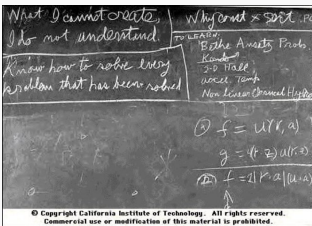 What I cannot create,
I do not understand.
Know how to solve every
problem that has been solved
Why const × sort . PO
TO LEARN:
Bethe Ansatz Prob.
Kondo
2-D Hall
accel. Temp
Non linear Classical Hydro
(a) f = u(r, a)
g =
(b) f = 2|r·a|(u·a)
© Copyright California Institute of Technology. All rights reserved.
Commercial use or modification of this material is prohibited.